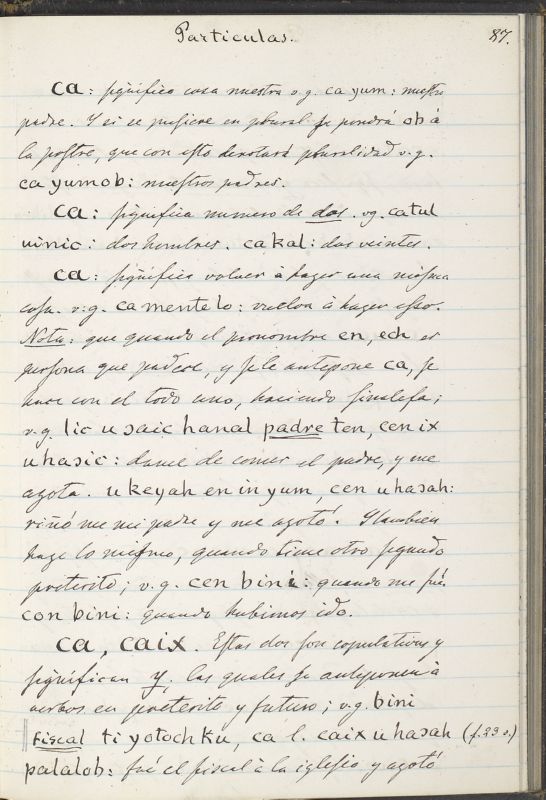 Particulas.
87.
ca: significa cosa nuestra v.g. ca yum: nuestro
padre. Y si se pusiere en plural se pondrá ob á
la postre, que con esto denotará pluralidad v.g.
ca yumob: nuestros padres.
ca: significa numero de dos. vg. catul
uinic: dos hombres. cakal: dos veintes.
ca: significa volver à hazer una misma
cosa. v.g. ca mente lo: vuelva à hazer esso.
Nota: que quando el pronombre en, ech es
persona que padece, y se le antepone ca, se
hace con el todo uno, haciendo sinalefa;
v.g. lic u saic hanal padre ten, cen ix
u hasic: dame de comer el padre, y me
azota. u keyah en in yum, cen u hasah:
riñó me mi padre y me azotó. Y tambien
haze lo mismo, quando tiene otro segundo
preterito; v.g. cen bini: quando me fui.
con bini: quando hubimos ido.
ca, caix. Estas dos son copulativas y
significan y, las quales se anteponen à
verbos en preterito y futuro; v.g. bini
fiscal ti yotoch ku, ca l. caix u hasah (f. 23 v.)
palalob: fué el fiscal à la iglesia y azotó